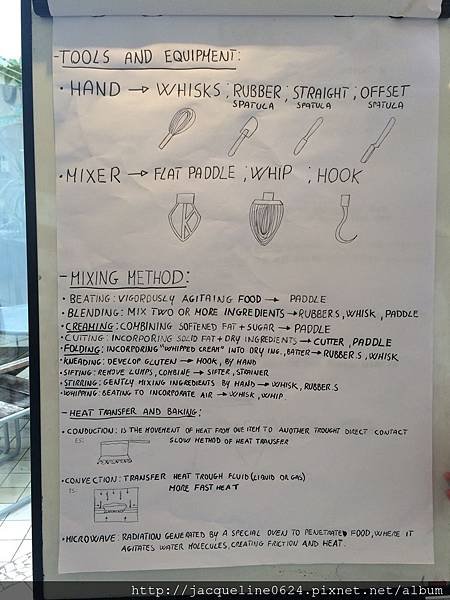 - TOOLS AND EQUIPMENT:
• HAND → WHISKS; RUBBER; STRAIGHT; OFFSET
SPATULA SPATULA SPATULA
• MIXER → FLAT PADDLE; WHIP ; HOOK
- MIXING METHOD:
• BEATING: VIGOROUSLY AGITAING FOOD → PADDLE
• BLENDING: MIX TWO OR MORE INGREDIENTS → RUBBER.S, WHISK, PADDLE
• CREAMING: COMBINING SOFTENED FAT + SUGAR → PADDLE
• CUTTING: INCORPORING SOLID FAT + DRY INGREDIENTS → CUTTER, PADDLE
• FOLDING: INCORPORING "WHIPPED CREAM" INTO DRY ING, BATTER → RUBBER.S, WHISK
• KNEADING: DEVELOP GLUTEN → HOOK, BY HAND
• SIFTING: REMOVE LUMPS, COMBINE → SIFTER, STRAINER
• STIRRING: GENTLY MIXING INGREDIENTS BY HAND → WHISK, RUBBER.S
• WHIPPING: BEATING TO INCORPORATE AIR → WHISK, WHIP
- HEAT TRANSFER AND BAKING:
• CONDUCTION: IS THE MOVEMENT OF HEAT FROM ONE ITEM TO ANOTHER TROUGHT DIRECT CONTACT
ES: SLOW METHOD OF HEAT TRANSFER
• CONVECTION: TRANSFER HEAT TROUGH FLUID (LIQUID OR GAS)
ES: MORE FAST HEAT
• MICROWAVE: RADIATION GENERATED BY A SPECIAL OVEN TO PENETRATE FOOD, WHERE IT
AGITATES WATER MOLECULES, CREATING FRICTION AND HEAT.
http://jacqueline0624.pixnet.net/album